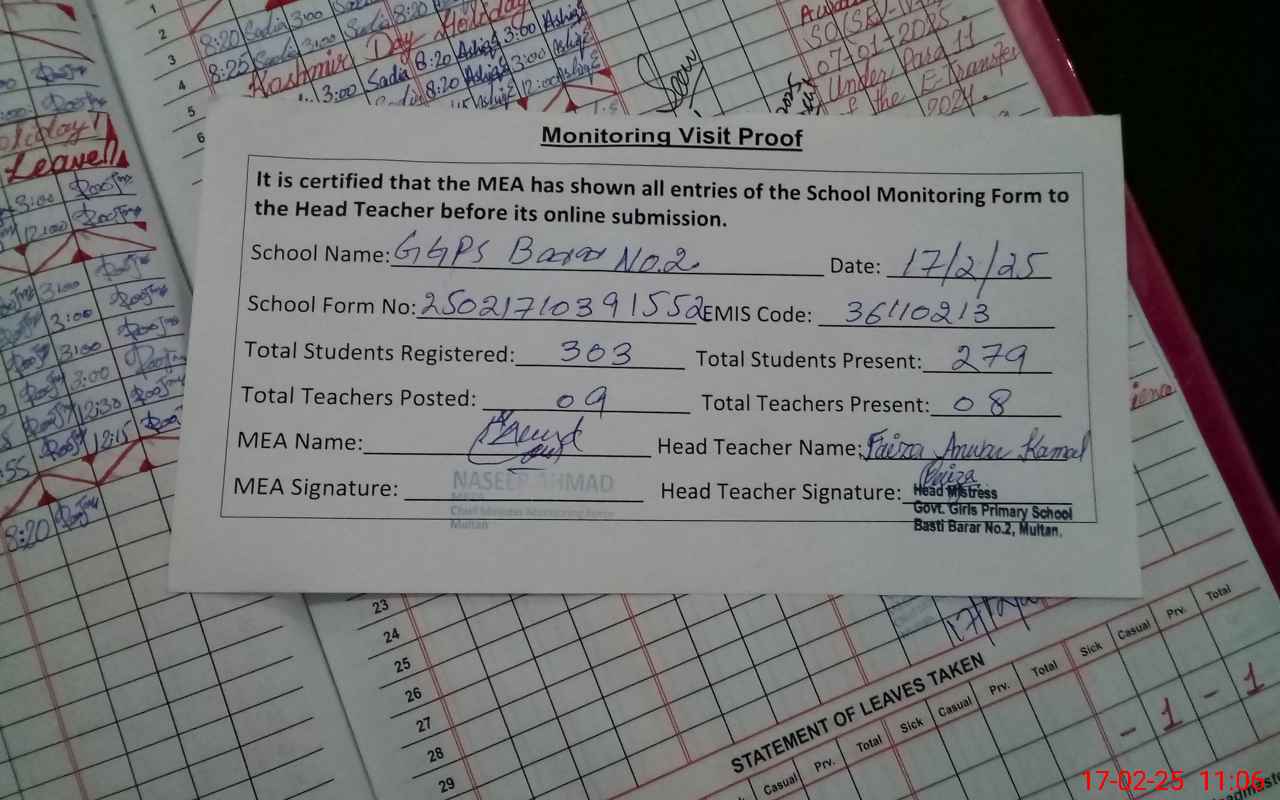 1
2
3
4
5
6
8:20 Sadia 3:00 Sadia 8:20
8:25 Sadia 3:00
Kashmir Day Holiday
3:00 Sadia 8:20 Ashiq 3:00 Ashiq
8:20 Ashiq 3:00 Ashiq
Ashiq 12:00 Ashiq
07-01-2025
Under Para 11
the E-Transfer
2024.
Holiday
Leave
3:00
12:00
3:00
3:00
3:00
3:00
12:30
12:15
:55
8:20
Monitoring Visit Proof
It is certified that the MEA has shown all entries of the School Monitoring Form to
the Head Teacher before its online submission.
School Name: GGPS Barar No.2 Date: 17/2/25
School Form No: 25021710391552 EMIS Code: 36110213
Total Students Registered: 303 Total Students Present: 279
Total Teachers Posted: 09 Total Teachers Present: 08
MEA Name: Head Teacher Name: Faiza Anwar Kamal
MEA Signature: Head Teacher Signature: Faiza
NASEER AHMAD
MEA
Chief Minister Monitoring Force
Multan
Head Mistress
Govt. Girls Primary School
Basti Barar No.2, Multan.
23
24
25
26
27
28
29
STATEMENT OF LEAVES TAKEN
Casual Prv. Total Sick Casual Prv. Total Sick Casual Prv. Total
- 1 - 1
17-02-25 11:06